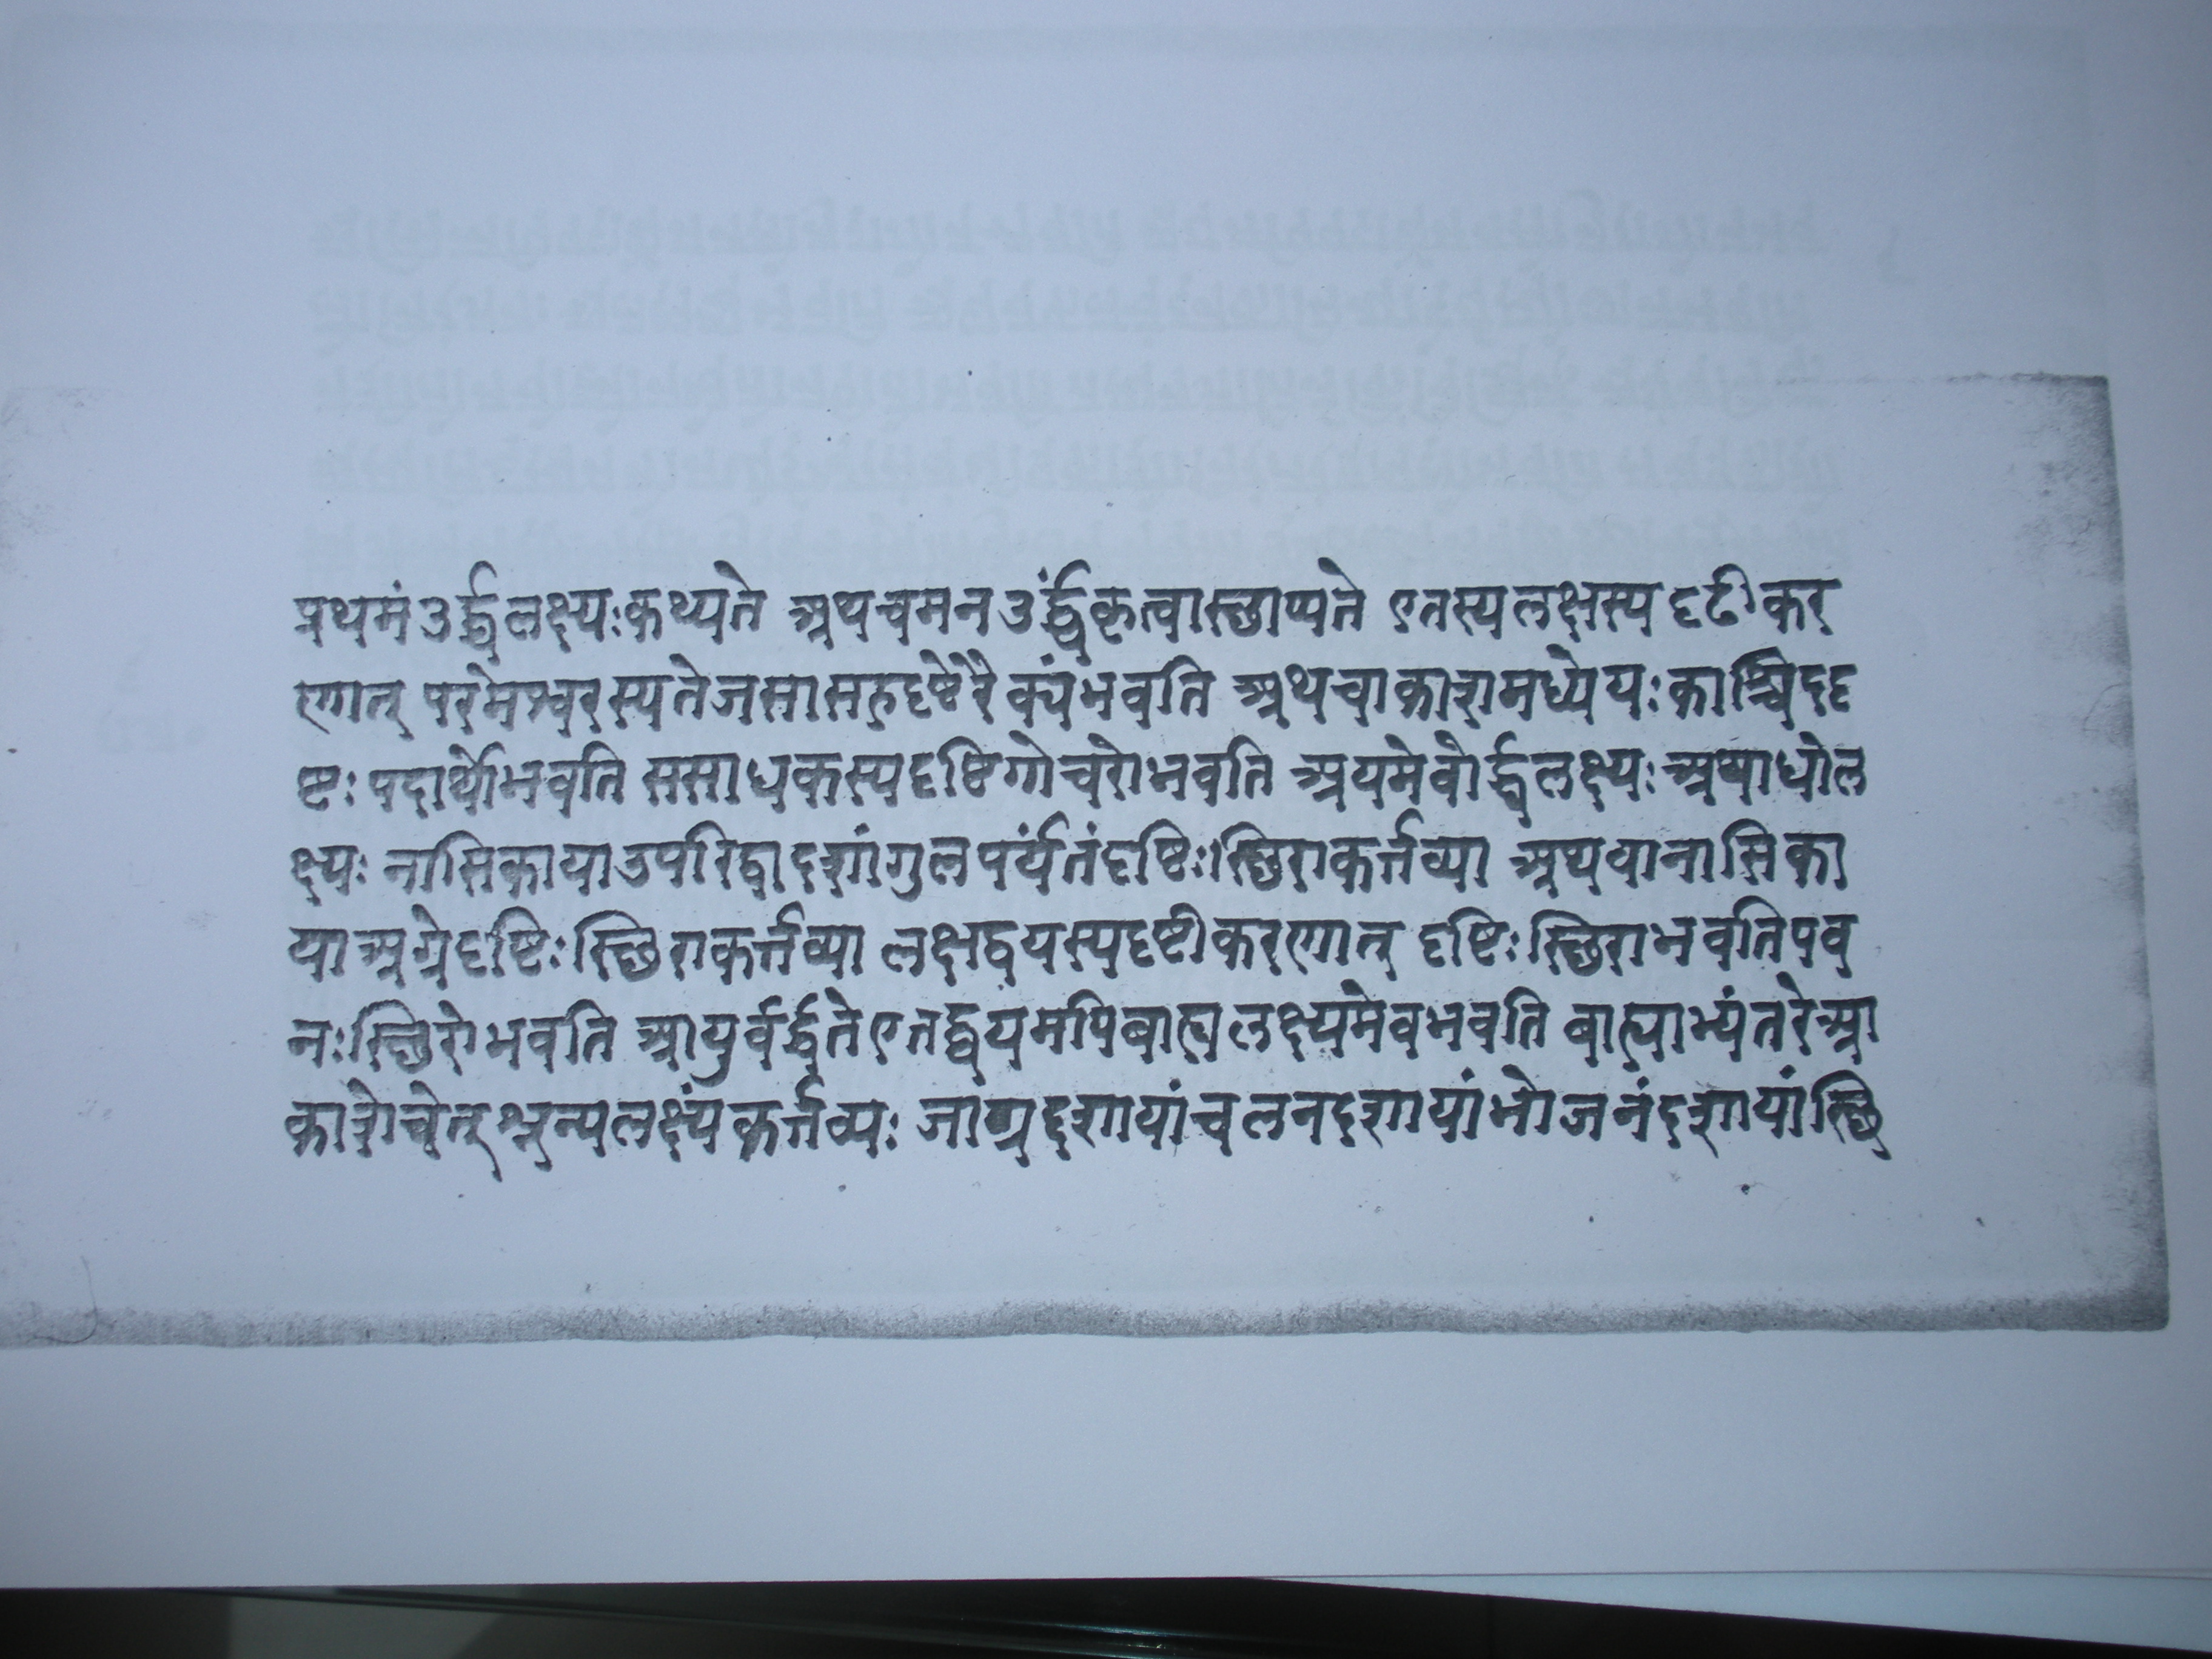 प्रथमं उर्द्ध्वलक्ष्यः कथ्यते अथ च मन उर्द्ध्वं कृत्वा स्छाप्यते एतस्य लक्षस्य दृढीकर
णात् परमेश्वरस्य तेजसा सह दृष्टेरैक्यं भवति अथ चाकाशमध्ये यः काश्चिददृ
ष्टः पदार्थो भवति स साधकस्य दृष्टिगोचरो भवति अयमेवोर्द्ध्वलक्ष्यः अथाधोल
क्ष्यः नासिकाया उपरि द्वादशांगुलपर्यंतं दृष्टिः स्छिरा कर्त्तव्या अथवा नासिका
या अग्रे दृष्टिः स्छिरा कर्त्तव्या लक्षद्वयस्य दृष्टीकरणात् दृष्टिः स्छिरा भवति पव
नः स्छिरो भवति आयुर्वर्द्ध्वते एतद्द्वयमपि बाह्यलक्ष्यमेव भवति बाह्याभ्यंतरे आ
काशे चेत् शून्यलक्ष्यं कर्त्तव्यः जांग्रद्दशायां चलनदशायां भोजनंदशायां स्छि